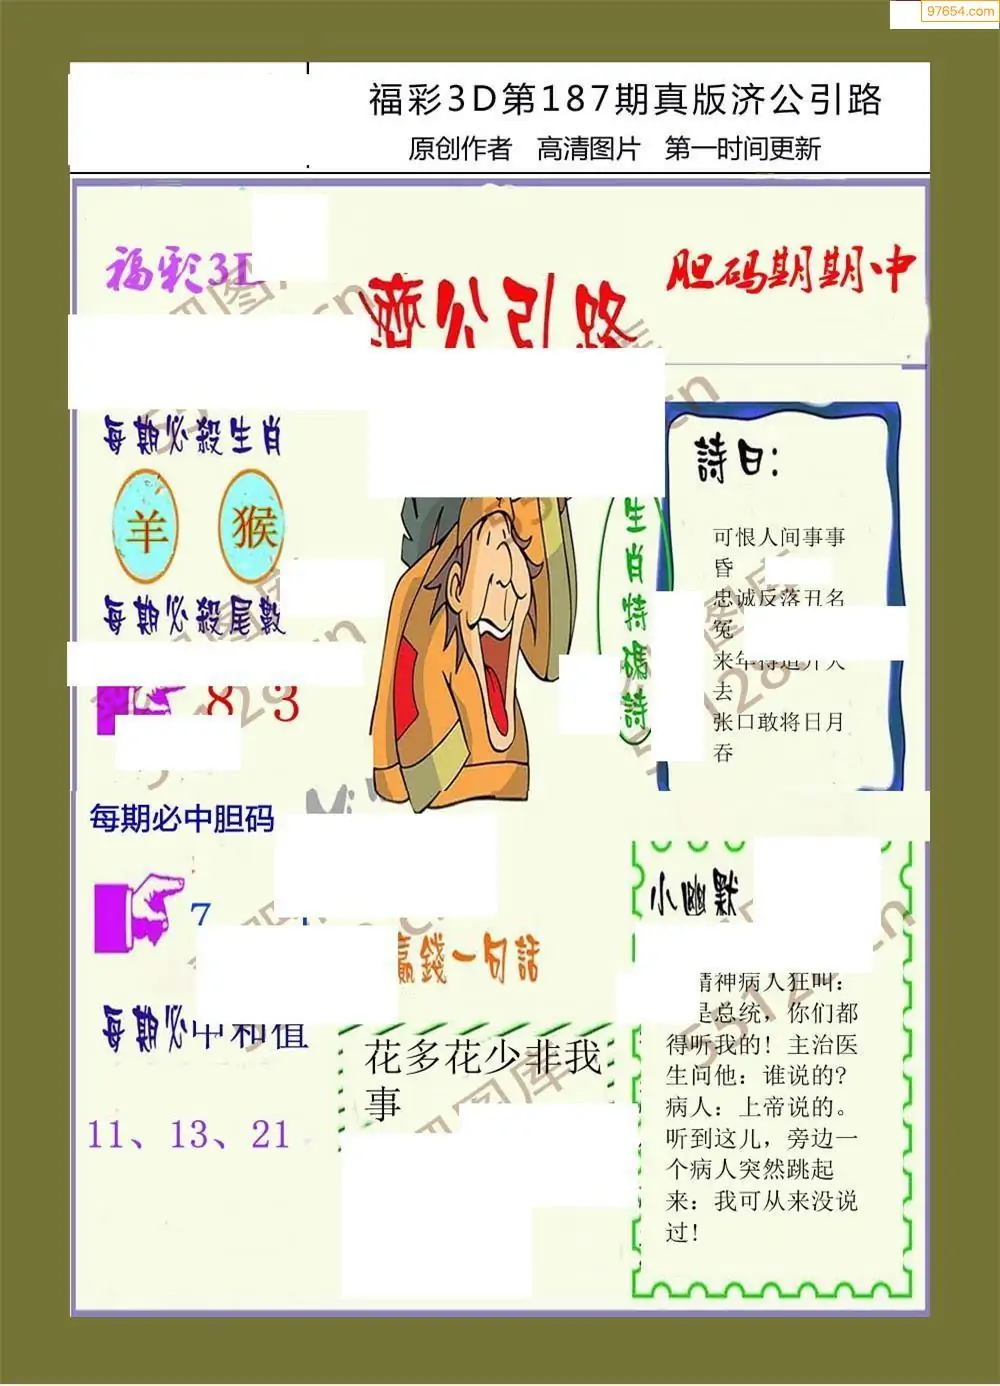 97654.com
福彩3D第187期真版济公引路
原创作者 高清图片 第一时间更新
福彩3
胆码期期中
濟公引路
每期必殺生肖
羊 猴
每期必殺尾數
8 3
每期必中胆码
7
每期必中和值
11、13、21
生肖特碼詩
詩曰:
可恨人间事事
昏
忠诚反落丑名
冤
来年得道升天
去
张口敢将日月
吞
赢錢一句話
花多花少非我
事
小幽默
精神病人狂叫:
是总统,你们都
得听我的! 主治医
生问他: 谁说的?
病人: 上帝说的。
听到这儿, 旁边一
个病人突然跳起
来: 我可从来没说
过!